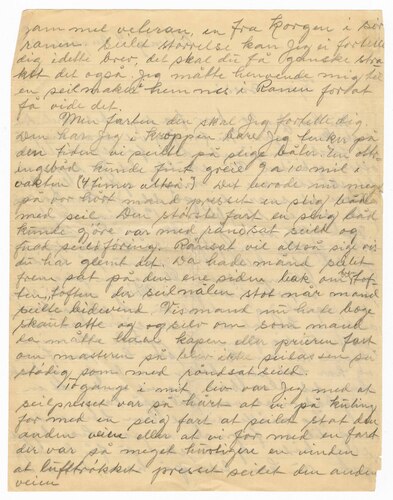 gammel veteran, en fra Korgen i Sør
ranen Seilet størrelse kan Jeg ei fortelle
dig i dette brev, det skal du få ganske stra
kst det også. Jeg måtte henvende mig til
en seilmaker hemmes i Ranen forat
få vide det.
Men farten den skal Jeg fortelle dig
Den har Jeg i Kroppen bare Jeg tenker på
den tiden vi seilet på slige båter. En otte
engsbåd kunde fint greie 9 a 10 mil i
vakten (4 timer altså.) Det berode nu meget
på vor hårt mand presset en slig båd
med seil. Den største fart en slig båt
kunde gjöre var med råndsat seil og
full seilföring. Rånsat vil altså sige vis
du har glemt det. Da hade mand seilet
frem sat på den ene siden bak om
toften der seilnålen stot når mand
seilte bidevind. Vis mand nu hade bege
skaut atte og ogselv om som mand
da måtte ha kapen eller prieren fast
om masten på blev ikke seilassen så
stödig som med råndsat seilet.
10 gange i mit liv var Jeg med at
seilpresset var så hårt at vi på kuling
for med en slig fart at seilet stod den
anden veien eller at vi for med en fart
der var så meget hurtigere en vinden
at lufttrökket presset seilet den anden
veien